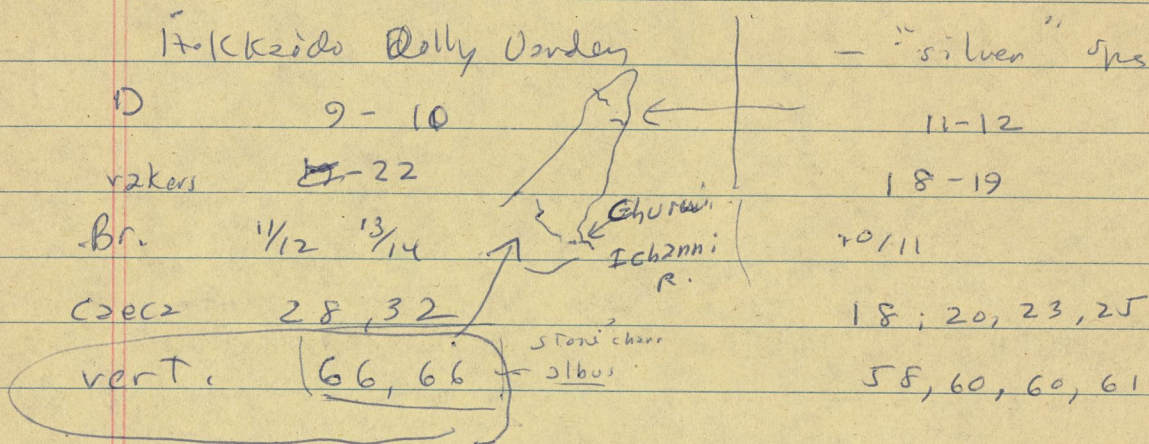 Hokkaido Dolly Varden - "silver" sps
D 9 - 10 11-12
rakers -22 18-19
Br. 11/12 13/14 10/11
Churui
Ichanni R.
caeca 28, 32 18, 20, 23, 25
vert. (66, 66) - albus 58, 60, 60, 61